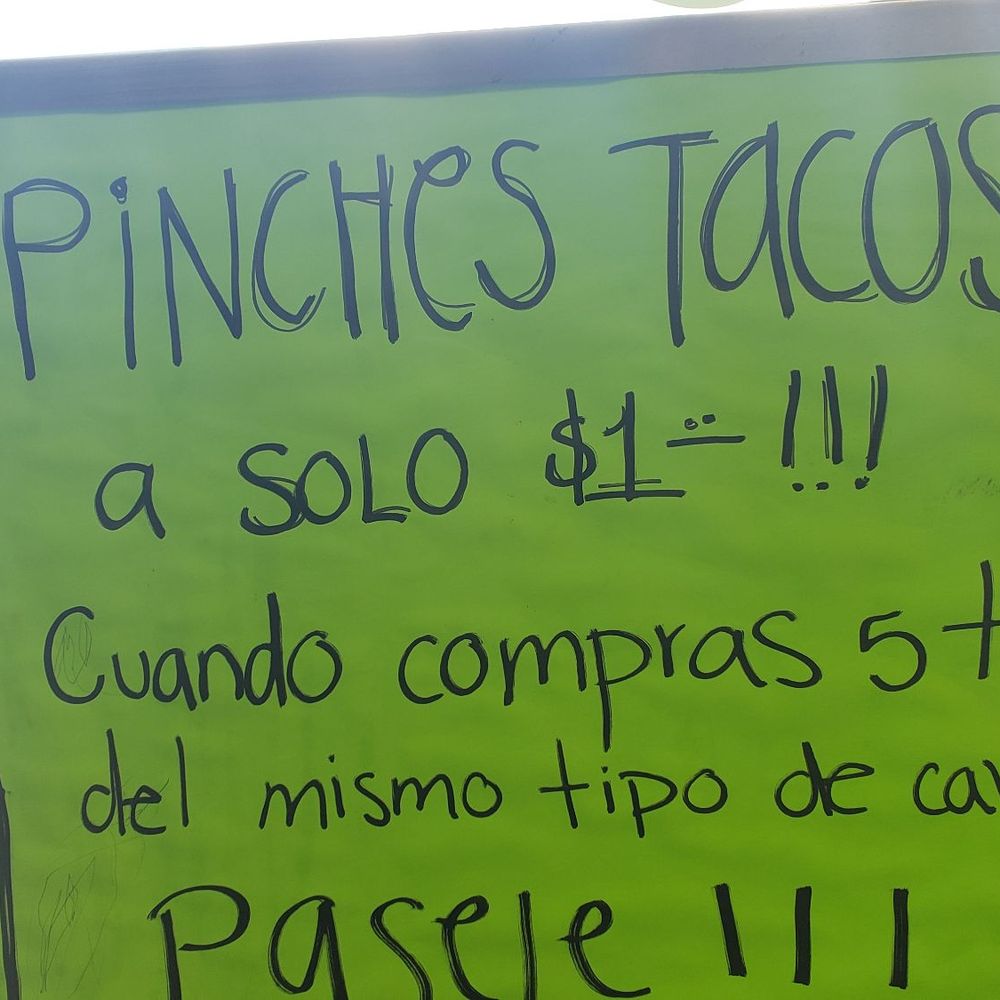 PiNCHeS TacoS
a SOLO $1 !!!
Cuando compras 5
del mismo tipo de
Pasele !!!